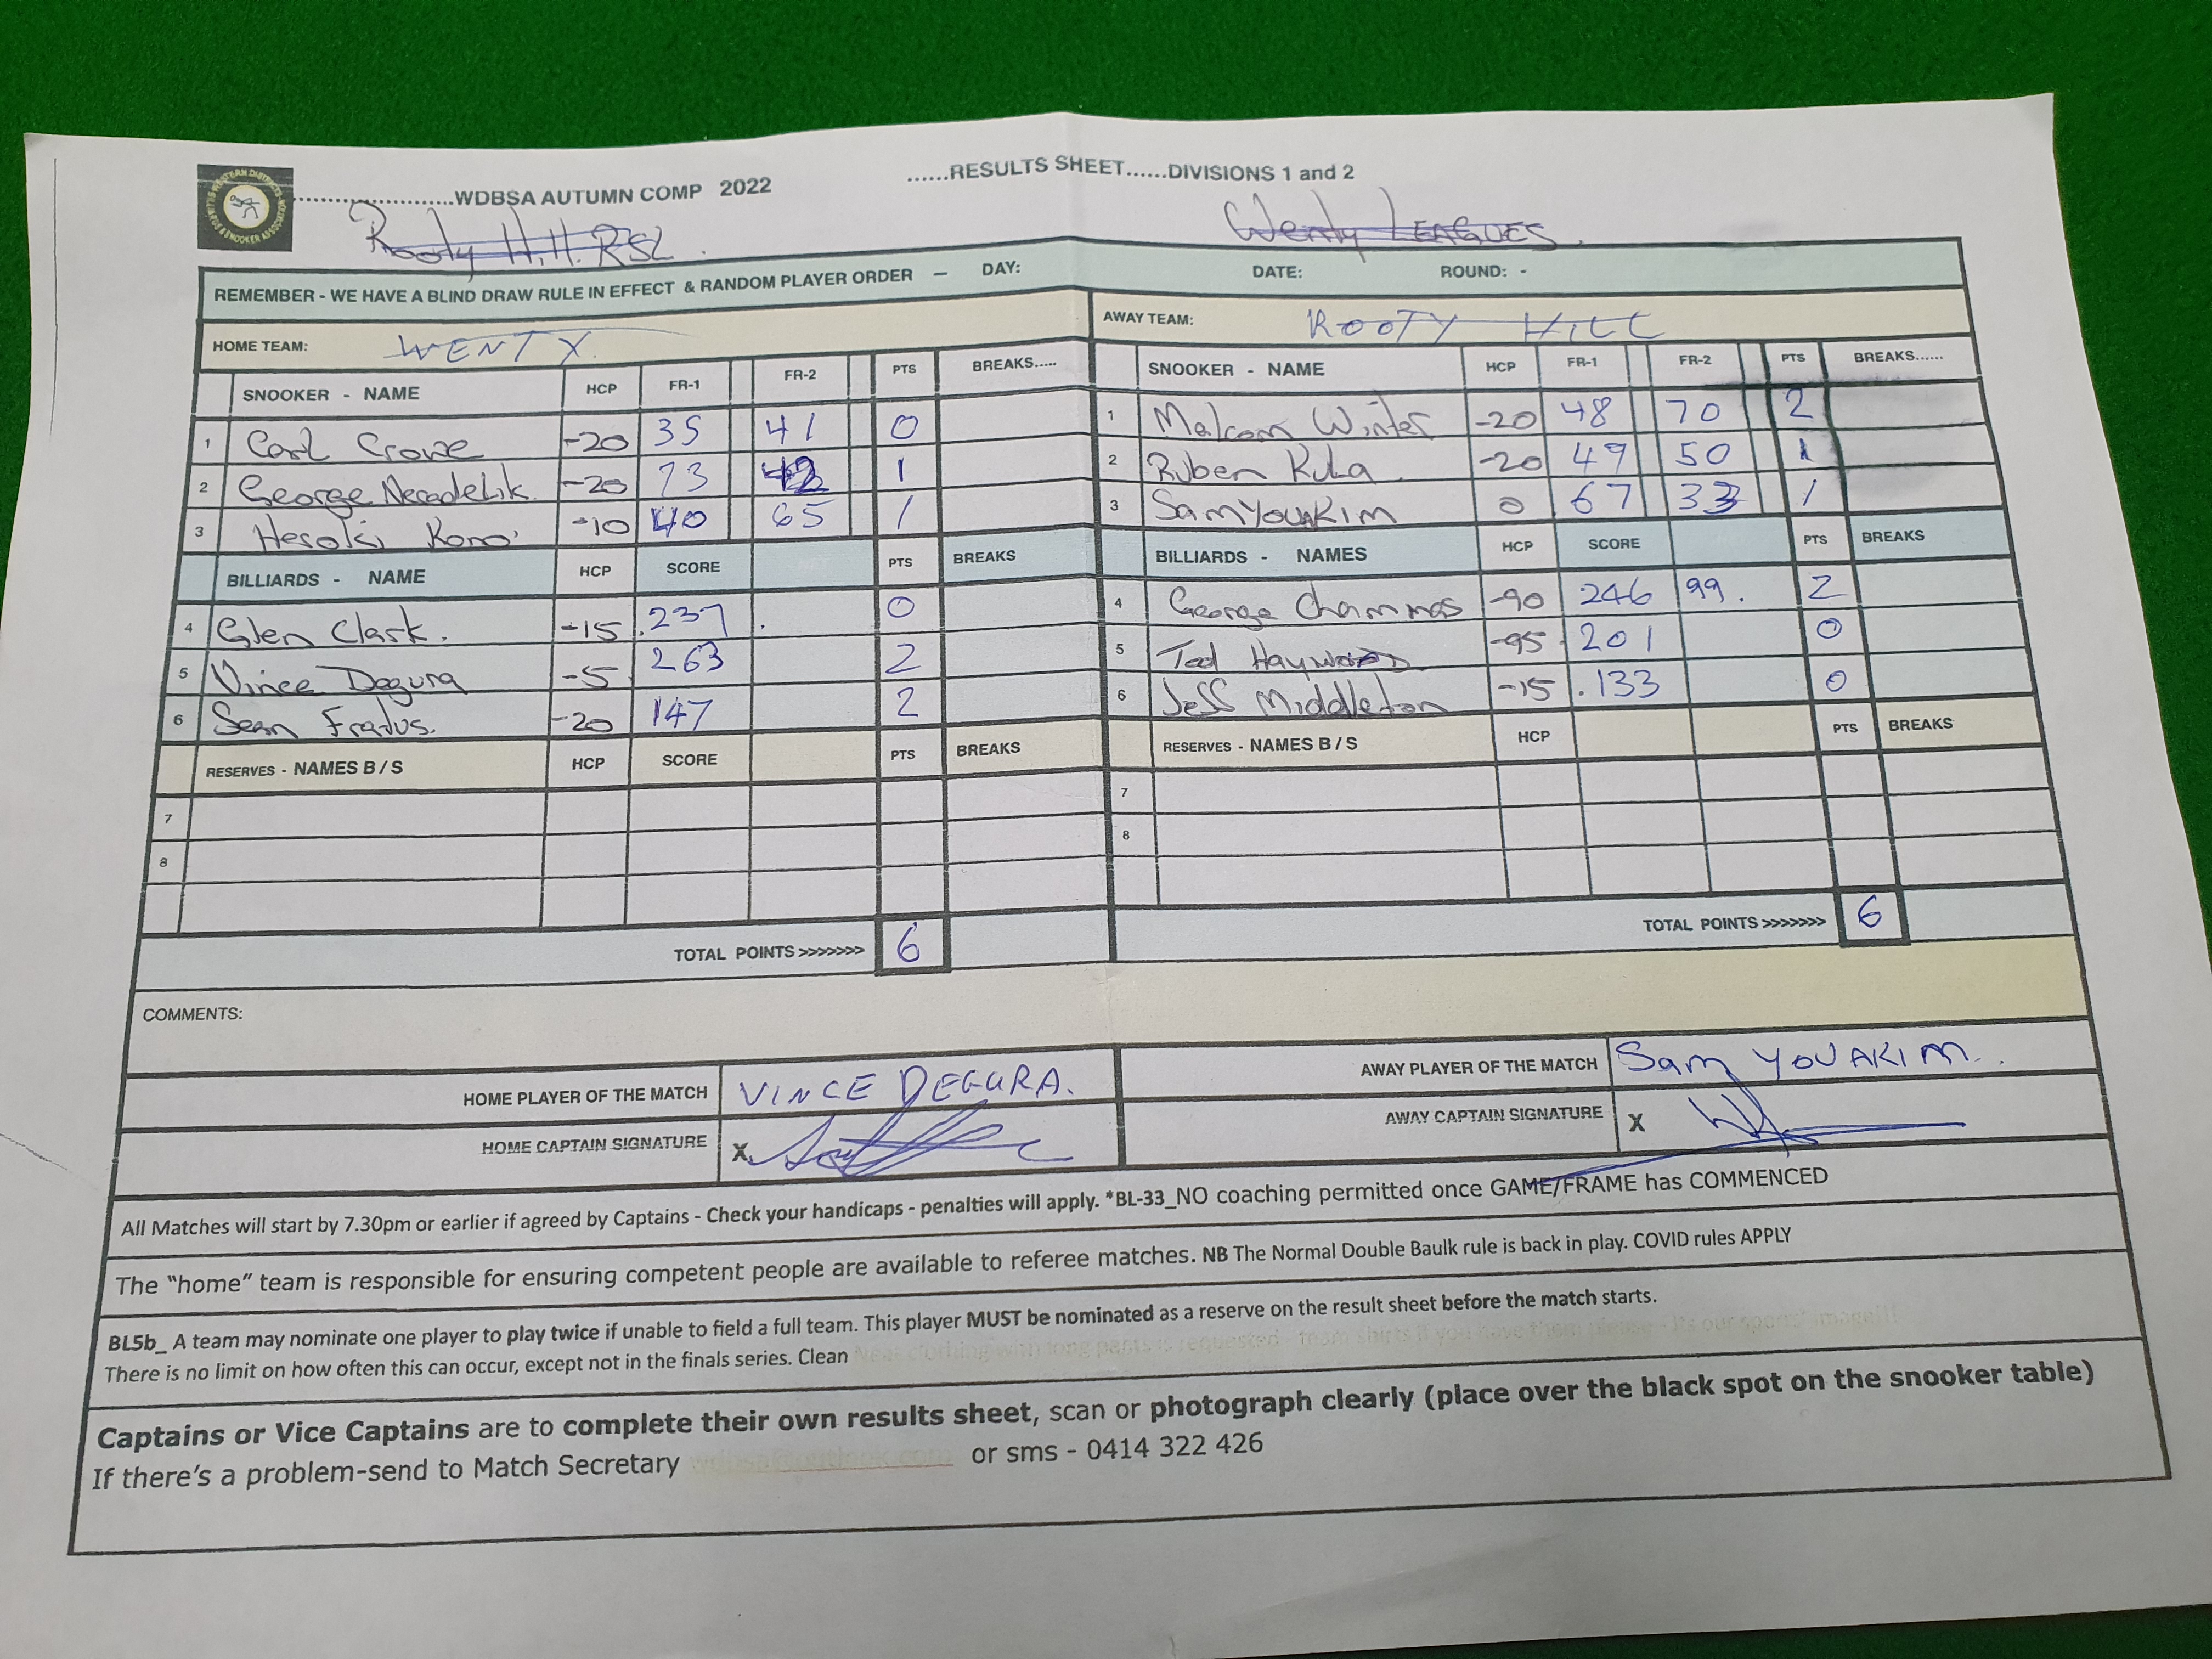 WESTERN DISTRICTS BILLIARDS & SNOOKER ASSOCIATION
WDBSA AUTUMN COMP 2022 ......RESULTS SHEET......DIVISIONS 1 and 2
Rooty Hill RSL. Wenty LEAGUES.
REMEMBER - WE HAVE A BLIND DRAW RULE IN EFFECT & RANDOM PLAYER ORDER – DAY: DATE: ROUND: -
HOME TEAM: WENTY AWAY TEAM: ROOTY HILL
SNOOKER - NAME HCP FR-1 FR-2 PTS BREAKS..... SNOOKER - NAME HCP FR-1 FR-2 PTS BREAKS......
1 Carl Crowe -20 35 41 0 1 Malcom Winter -20 48 70 2
2 George -20 73 42 1 2 Ruben Kula -20 49 50 1
3 Heroki Kono -10 40 65 1 3 Sam Youakim 0 67 33 1
BILLIARDS - NAME HCP SCORE PTS BREAKS BILLIARDS - NAMES HCP SCORE PTS BREAKS
4 Glen Clark. -15 237 0 4 George Chammas -90 246 99. 2
5 Vince Degura -5 263 2 5 Ted Haywood -95 201 0
6 Sean Fradus. -20 147 2 6 Jeff Middleton -15 133 0
RESERVES - NAMES B / S HCP SCORE PTS BREAKS RESERVES - NAMES B / S HCP PTS BREAKS
7 7
8 8
TOTAL POINTS >>>>>>> 6 TOTAL POINTS >>>>>>> 6
COMMENTS:
HOME PLAYER OF THE MATCH VINCE DEGURA. AWAY PLAYER OF THE MATCH Sam YOUAKIM..
HOME CAPTAIN SIGNATURE X AWAY CAPTAIN SIGNATURE X
All Matches will start by 7.30pm or earlier if agreed by Captains - Check your handicaps - penalties will apply. *BL-33_NO coaching permitted once GAME/FRAME has COMMENCED
The "home" team is responsible for ensuring competent people are available to referee matches. NB The Normal Double Baulk rule is back in play. COVID rules APPLY
BL5b_ A team may nominate one player to play twice if unable to field a full team. This player MUST be nominated as a reserve on the result sheet before the match starts.
There is no limit on how often this can occur, except not in the finals series. Clean
Captains or Vice Captains are to complete their own results sheet, scan or photograph clearly (place over the black spot on the snooker table)
If there's a problem-send to Match Secretary wdbsa@outlook.com or sms - 0414 322 426